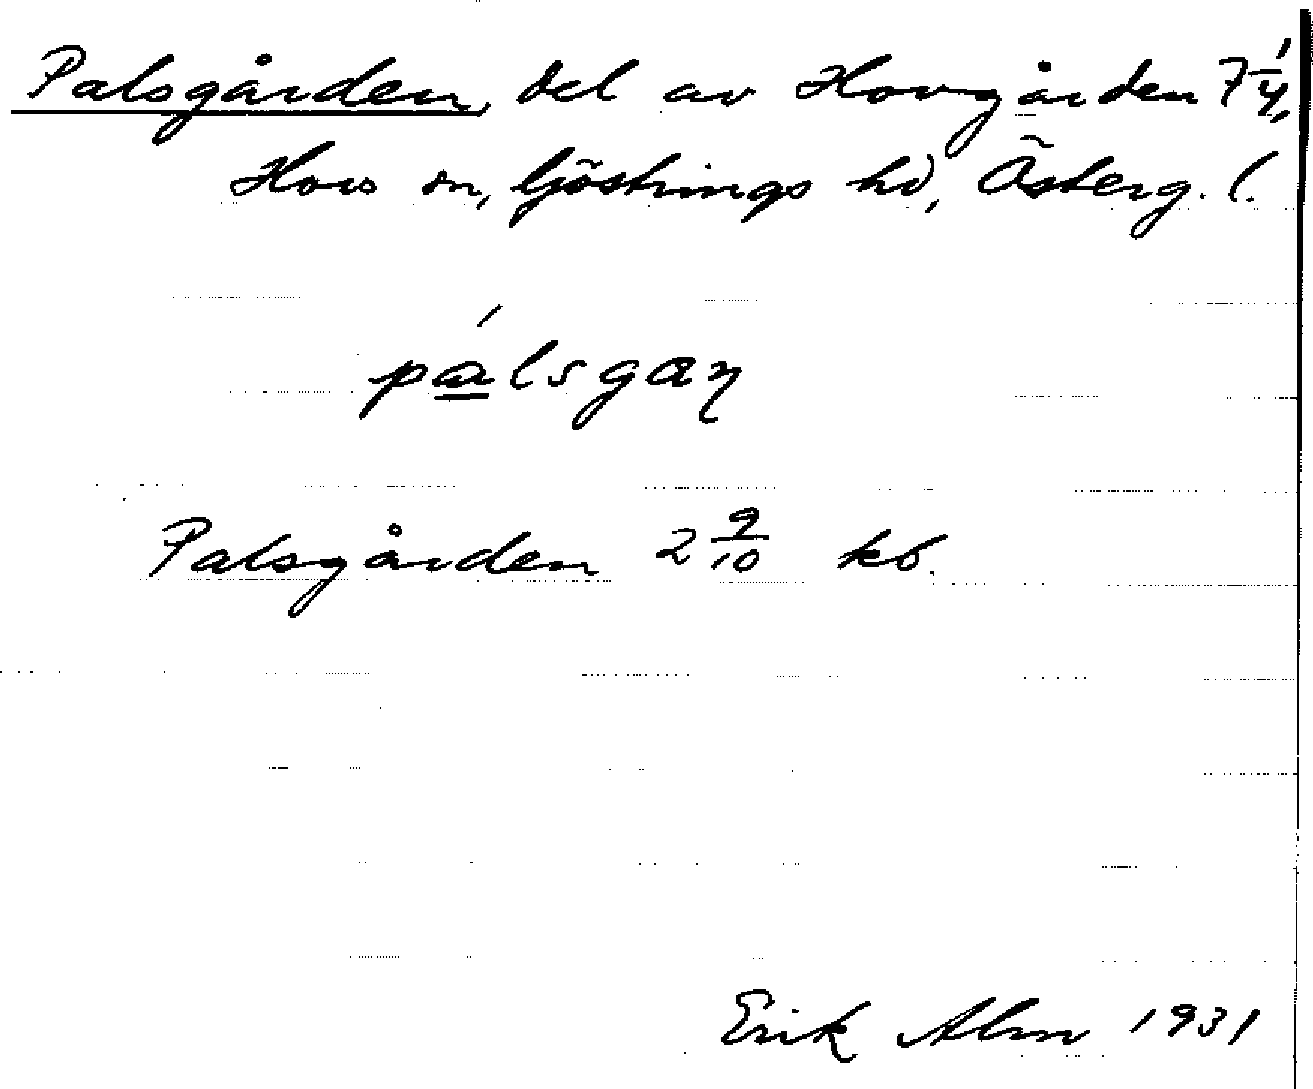 Palsgården, del av Hovgården 7 1/4,
Hovs sn, Göstrings hd, Österg. l.
pálsgaṇ
Palsgården 2 9/10 kb.
Erik Alm 1931